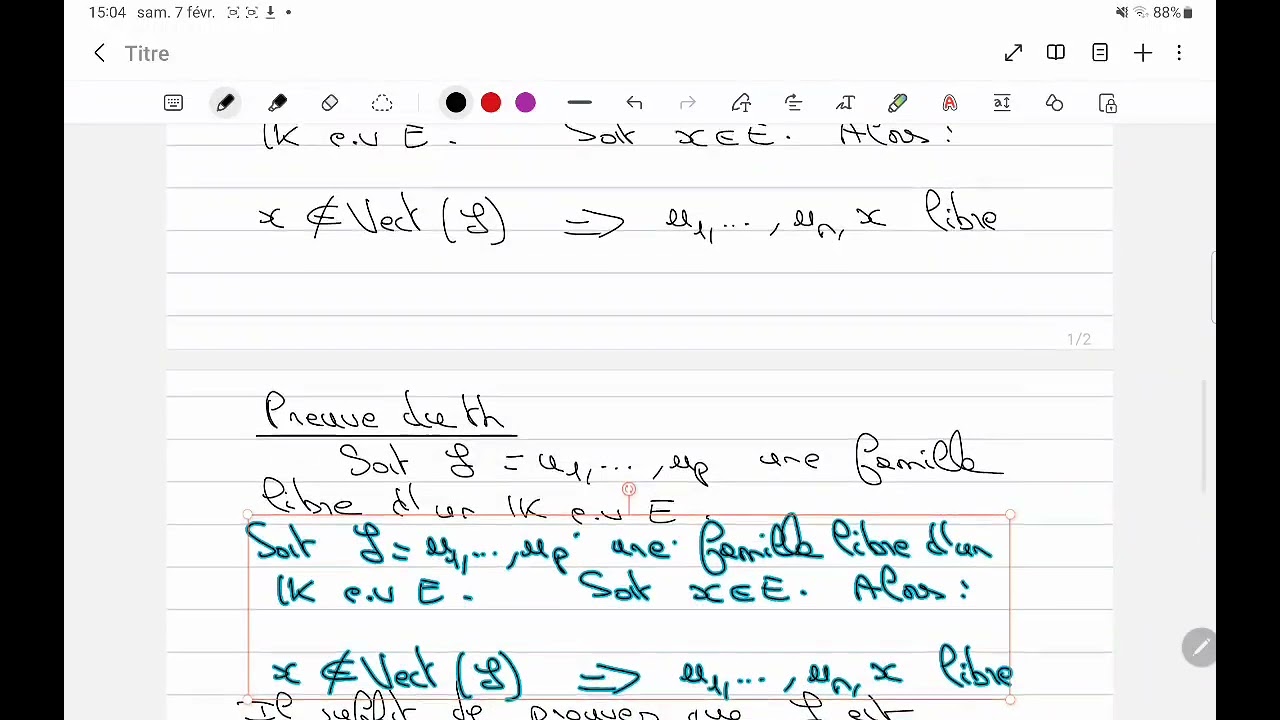 15:04 sam. 7 févr. 88%
Titre
IK e.v E. Soit x ∈ E. Alors :
x ∉ Vect (L) ⟹ u1, ..., un, x libre
1/2
Preuve du th
Soit L = u1, ..., up une famille
libre d'un IK e.v E.
Soit L = u1, ..., up une famille libre d'un
IK e.v E. Soit x ∈ E. Alors :
x ∉ Vect (L) ⟹ u1, ..., un, x libre
Il suffit de prouver que L est